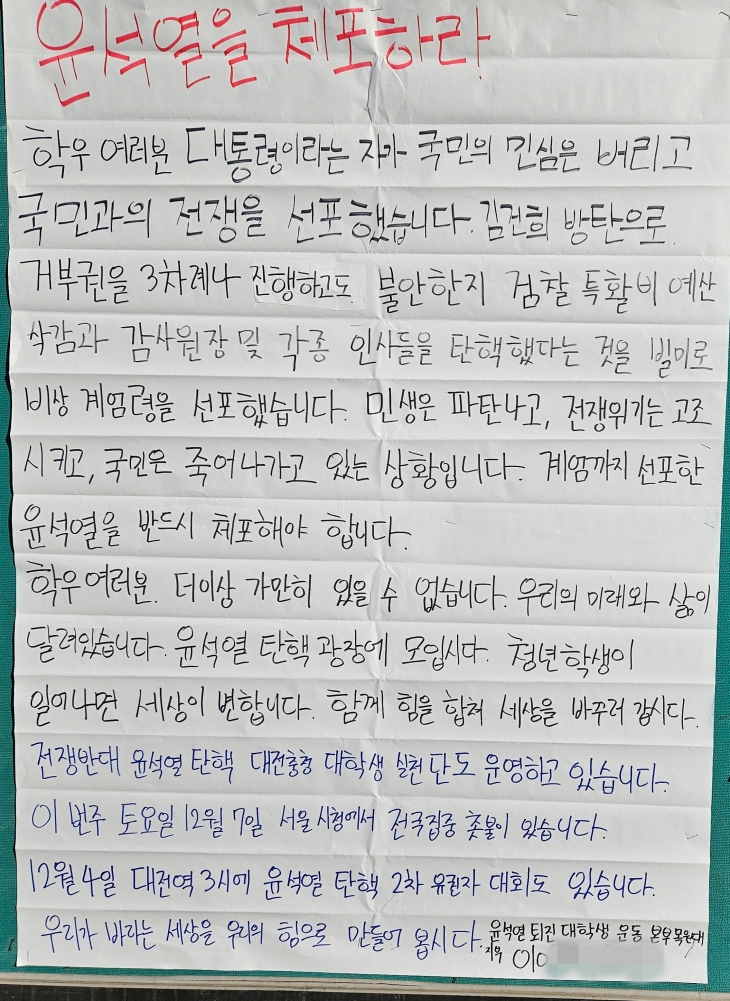 윤석열을 체포하라
학우 여러분 대통령이라는 자가 국민의 민심은 버리고
국민과의 전쟁을 선포했습니다. 김건희 방탄으로
거부권을 3차례나 진행하고도 불안한지 검찰 특활비 예산
삭감과 감사원장 및 각종 인사들을 탄핵했다는 것을 빌미로
비상 계엄령을 선포했습니다. 민생은 파탄나고, 전쟁위기는 고조
시키고, 국민은 죽어나가고 있는 상황입니다. 계엄까지 선포한
윤석열을 반드시 체포해야 합니다.
학우여러분. 더이상 가만히 있을 수 없습니다. 우리의 미래와 삶이
달려있습니다. 윤석열 탄핵 광장에 모입시다. 청년학생이
일어나면 세상이 변합니다. 함께 힘을 합쳐 세상을 바꾸러 갑시다.
전쟁반대 윤석열 탄핵 대전충청 대학생 실천단도 운영하고 있습니다.
이번주 토요일 12월 7일 서울 시청에서 전국집중 촛불이 있습니다.
12월 4일 대전역 3시에 윤석열 탄핵 2차 유권자 대회도 있습니다.
우리가 바라는 세상을 우리의 힘으로 만들어 봅시다.
윤석열 퇴진 대학생 운동 본부 목원대
지부 010